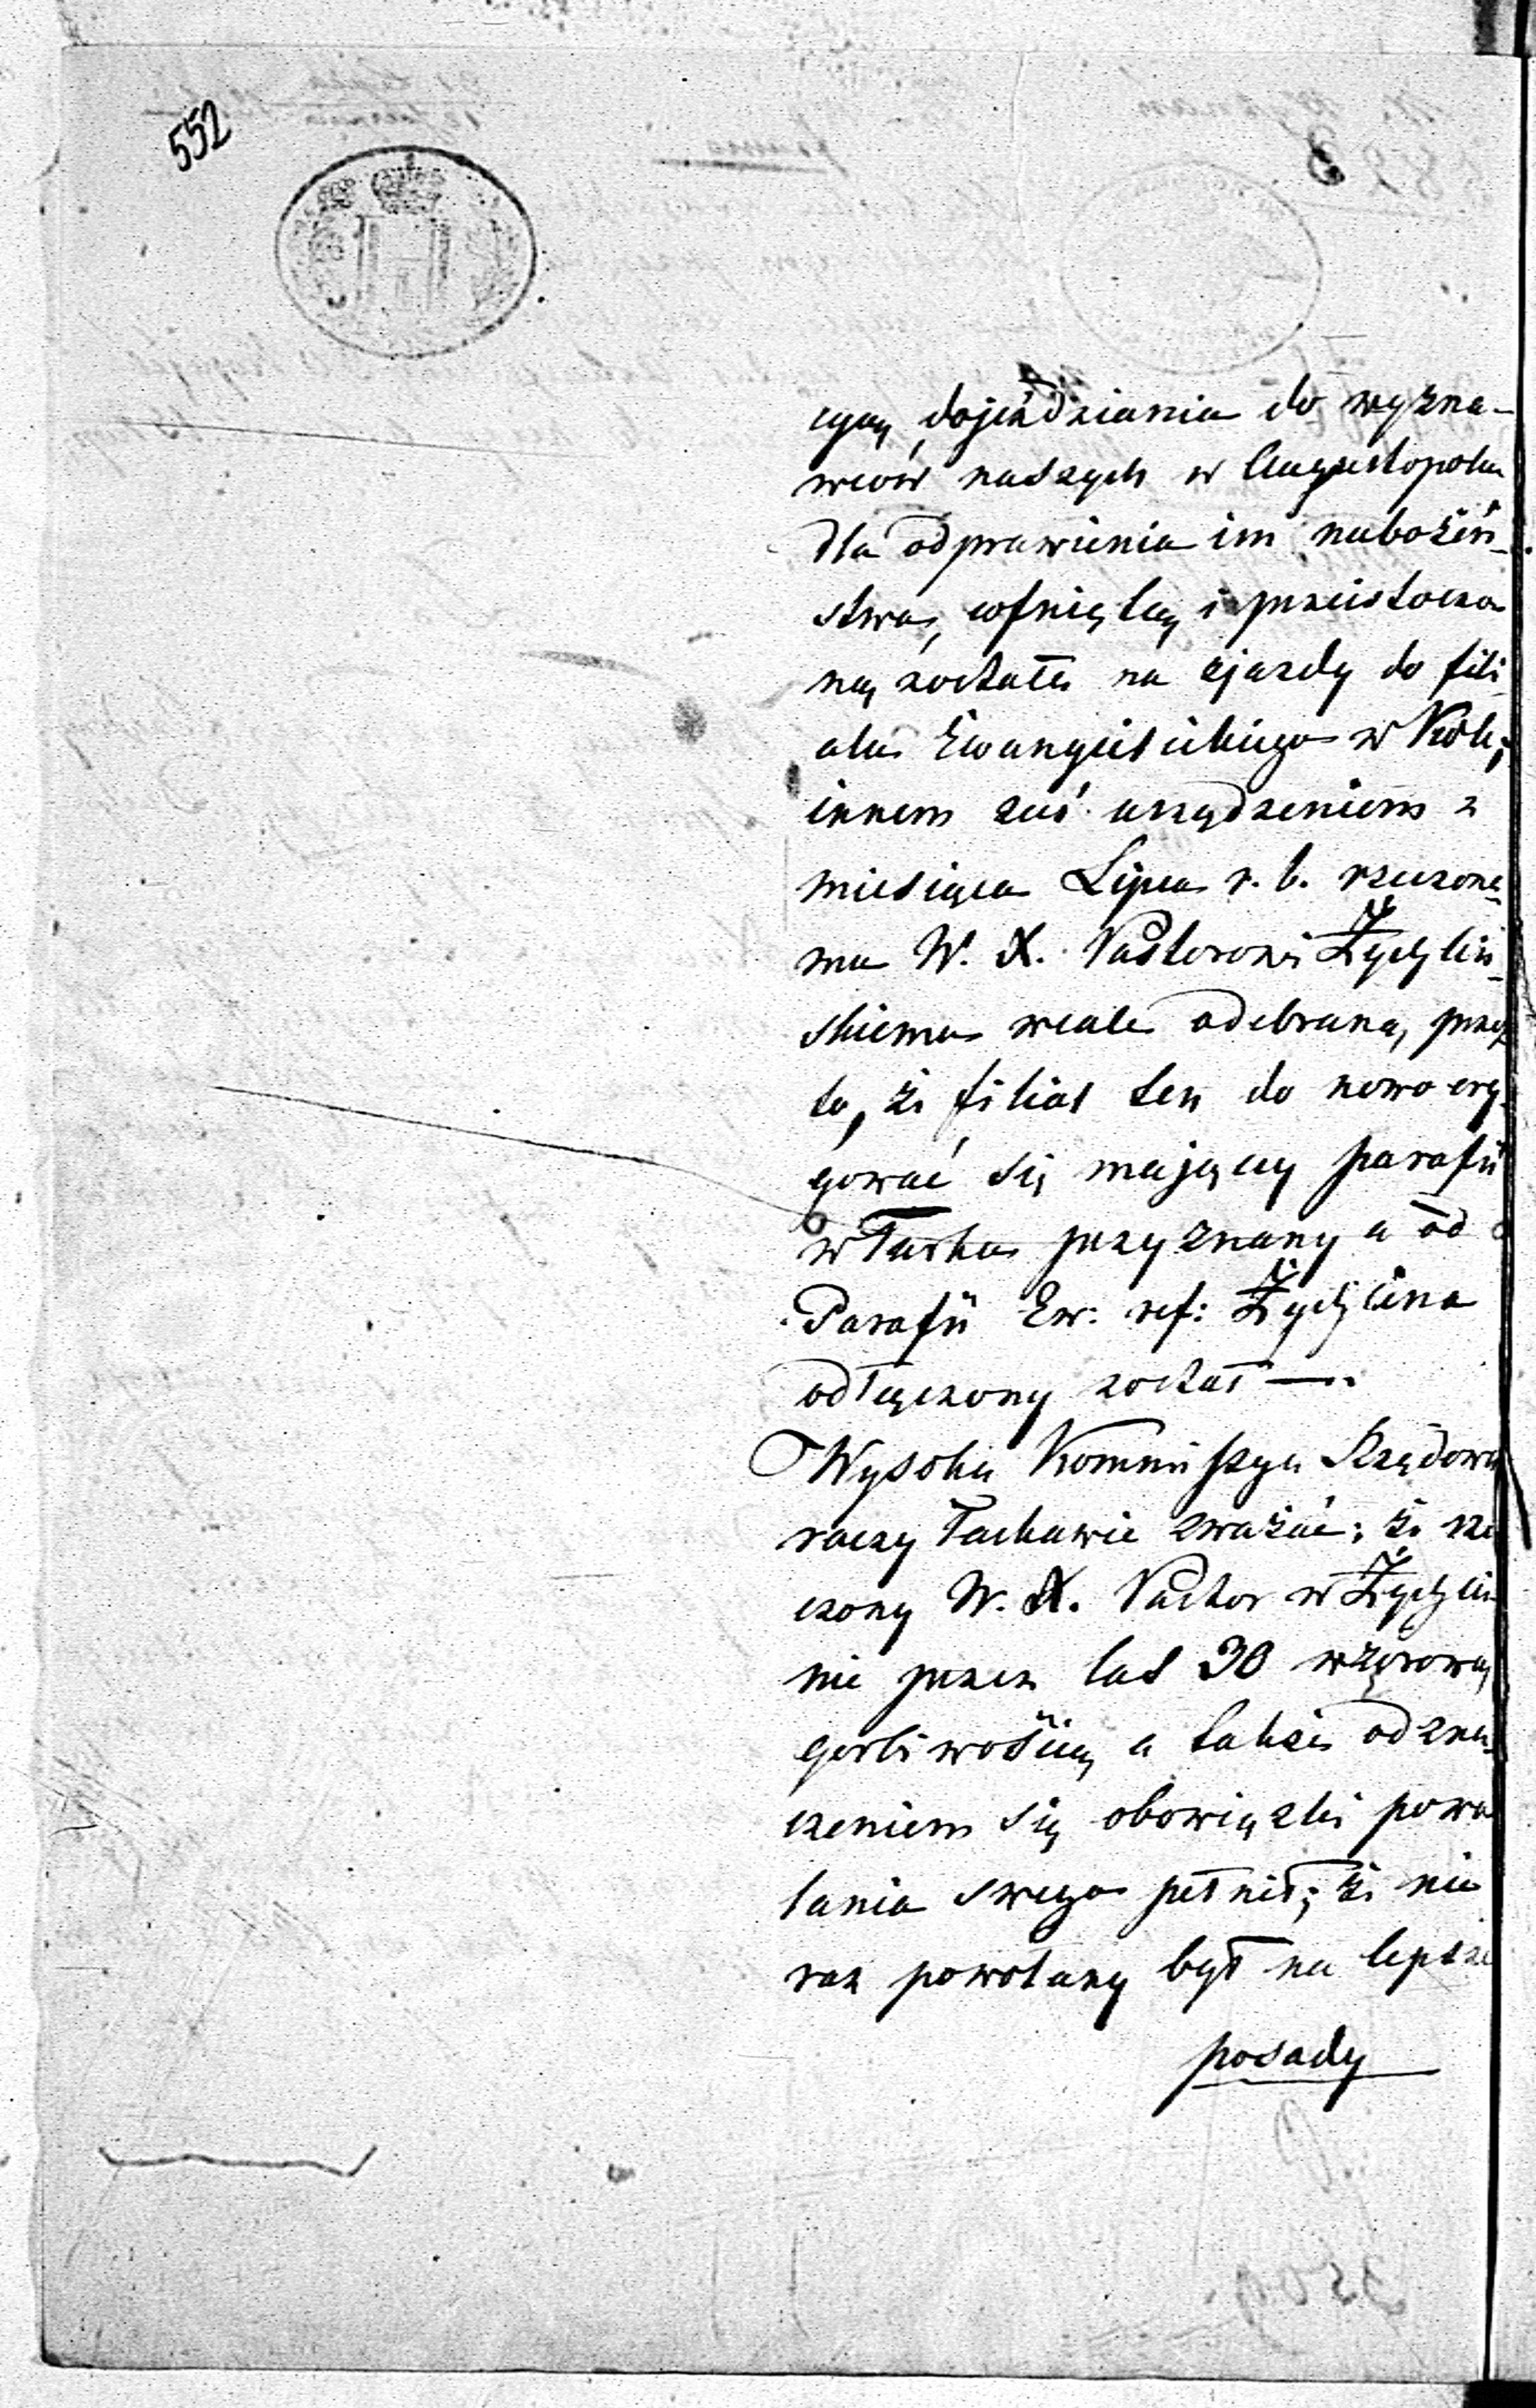 552
cyą dojeżdziania do wyzna-
wców naszych w Augustopolu
dla odprawienia im nabożeń-
stwa, cofniętą i przeistoczo
ną została na zjazdy do fili
ału Ewangielickiego w Kole,
innem zaś urządzeniem z
miesiąca Lipca r. b. rzeczone-
mu W. X. Pastorowi Żychliń-
skiemu wcale odebraną, przez
to, że filiał ten do nowo ery-
gować się mającej parafii
w Turku przyznany a od
Parafii Ew: ref: Żychlina
odłączony został —.
Wysoka Kommissya Rządowa
raczy łaskawie zważać; że rze
czony W. X. Pastor w Żychli
nie przez lat 30 wzorową
gorliwością a także odzna-
czeniem się obowiązki powo
łania swego pełnił; że nie
raz powołany był na lepsze
posady